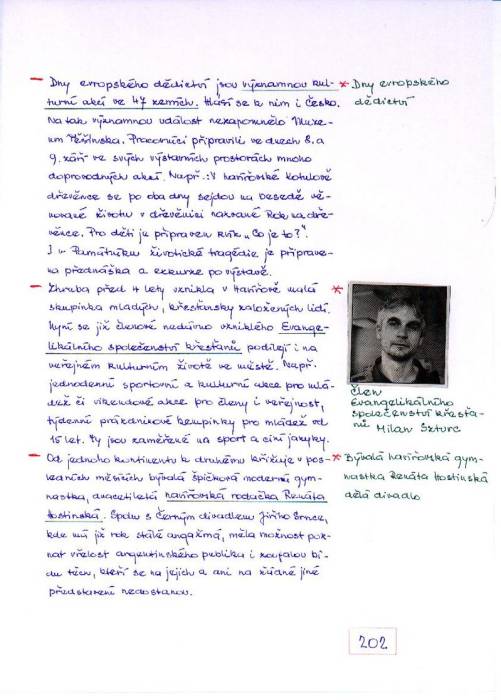 Dny evropského dědictví jsou významnou kul-
turní akcí ve 47 zemích. Hlásí se k nim i Česko.
Na tak významnou událost nezapomnělo Muze-
um Těšínska. Pracovníci připravili ve dnech 8. a
9. září ve svých výstavních prostorách mnoho
doprovodných akcí. Např.: V havířovské Kotulově
dřevěnce se po oba dny sejdou na besedě vě-
nované životu v dřevěnici nazvané Rok na dře-
věnce. Pro děti je připraven kvík „Co je to?".
I v Památníku životické tragédie je připrave-
na přednáška a exkurze po výstavě.
Zhruba před 4 lety vznikla v Havířově malá
skupinka mladých, křesťansky založených lidí.
Nyní se již členové nedávno vzniklého Evange-
likálního společenství křesťanů podílejí i na
veřejném kulturním životě ve městě. Např.
jednodenní sportovní a kulturní akce pro mlá-
dež či víkendové akce pro členy i veřejnost,
týdenní prázdninové kempinky pro mládež od
15 let. Ty jsou zaměřené na sport a cizí jazyky.
Od jednoho kontinentu k druhému křižuje v pos-
ledních měsících bývalá špičková moderní gym-
nastka, dvacetiletá havířovská rodačka Renáta
Hostinská. Spolu s Černým divadlem Jiřího Srnce,
kde má již rok stálé angažmá, měla možnost poz-
nat vřelost argentinského publika i zoufalou bí-
du těch, kteří se na jejich a ani na žádné jiné
představení nedostanou.
* Dny evropského
dědictví
*
Člen
Evangelikálního
společenství křesťa-
nů Milan Szturc
* Bývalá havířovská gym-
nastka Renáta Hostinská
dělá divadlo
202